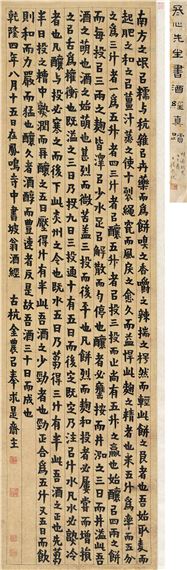 南方之氓㠯糯與秔雜㠯卉藥而為餅嗅之香嚼之辣揣之枵然而輕此餅之良者也吾始取麵而
起肥之和之㠯薑汁蒸之使十裂繩穿而風戾之愈久而益悍此麴之精者也米五斗為率而五分
之為三斗者一為五升者四三斗者㠯釀五升者㠯投三投而止尚有五升之贏也始釀㠯四兩之餅
而每投㠯二兩之麴皆澤㠯少水足㠯解散而勻停也釀者必甕按而井泓之三日而井溢此吾
酒之萌也酒之始萌也甚烈而微苦蓋三投而後平也凡餅烈而麴和投者必屢嘗而增損
之㠯舌為權衡也既溢之三日乃投九日三投通十有五日而後定也既定乃注㠯斗水凡水必熟冷
者也凡釀與投必寒之而後下此炎州之令也既水五日乃篘得二斗有半此吾酒之正也先篘
半投之糟中熟撋而再釀之五日壓得斗有半此吾酒之少勁者也勁正合為五斗又五日而飲
則和而力嚴而猛也釀久者酒醇而豐速者反是故吾酒三十日而成也
乾隆四年八月十三日在鳳鳴寺中書坡翁酒經 古杭金農 求是齋主
冬心先生書酒經真蹟